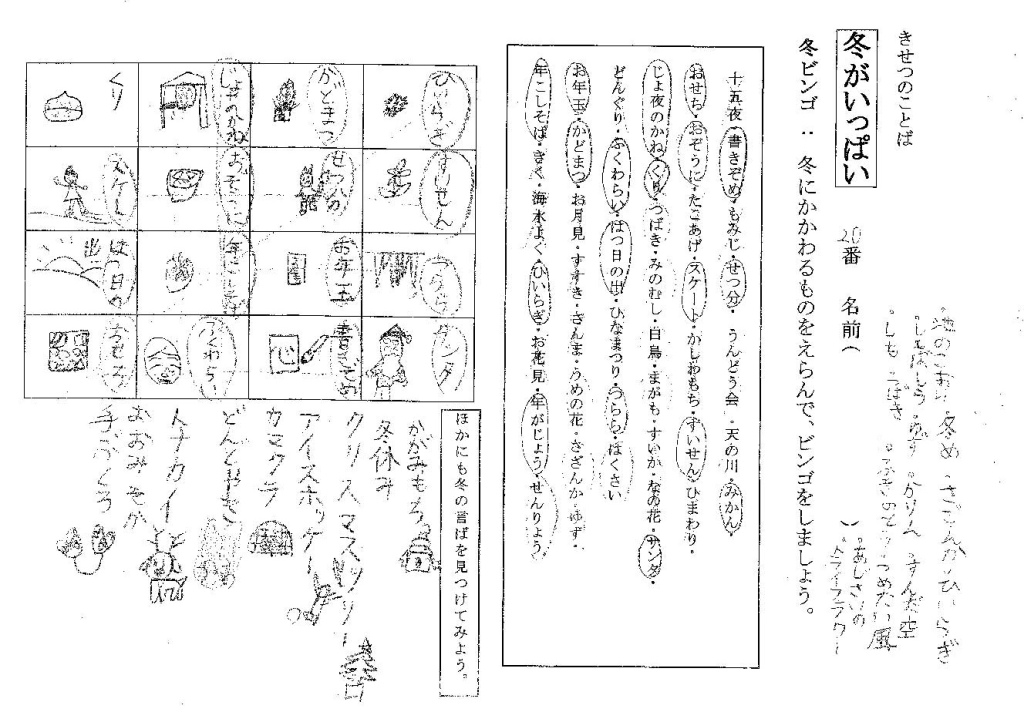 きせつのことば
冬がいっぱい
20番 名前（ ）
冬ビンゴ：冬にかかわるものをえらんで、ビンゴをしましょう。
池のこおり・冬め・さざんか・ひいらぎ
・しもばしら
・すんだ空
・しも
・つめたい風
・あじさいの
・ドライフラワー
十五夜・書きぞめ・もみじ・せつ分・うんどう会・天の川・みかん・
おせち・おぞうに・たこあげ・スケート・かしわもち・すいせん・ひまわり・
じょ夜のかね・くり・つばき・みのむし・白鳥・まがも・すいか・なの花・サンタ・
どんぐり・ふくわらい・はつ日の出・ひなまつり・つらら・はくさい
お年玉・かどまつ・お月見・すすき・さんま・うめの花・さざんか・ゆず・
年こしそば・きく・海水よく・ひいらぎ・お花見・年がじょう・せんりょう
ひいらぎ
すいせん
つらら
サンタ
かどまつ
せつ分
お年玉
書きぞめ
じょ夜のかね
おぞうに
年こしそば
ふくわらい
くり
スケート
はつ日の出
おせち
ほかにも冬の言ばを見つけてみよう。
かがみもち
冬休み
クリスマスツリー
アイスホッケー
カマクラ
どんどやき
トナカイ
おおみそか
手ぶくろ